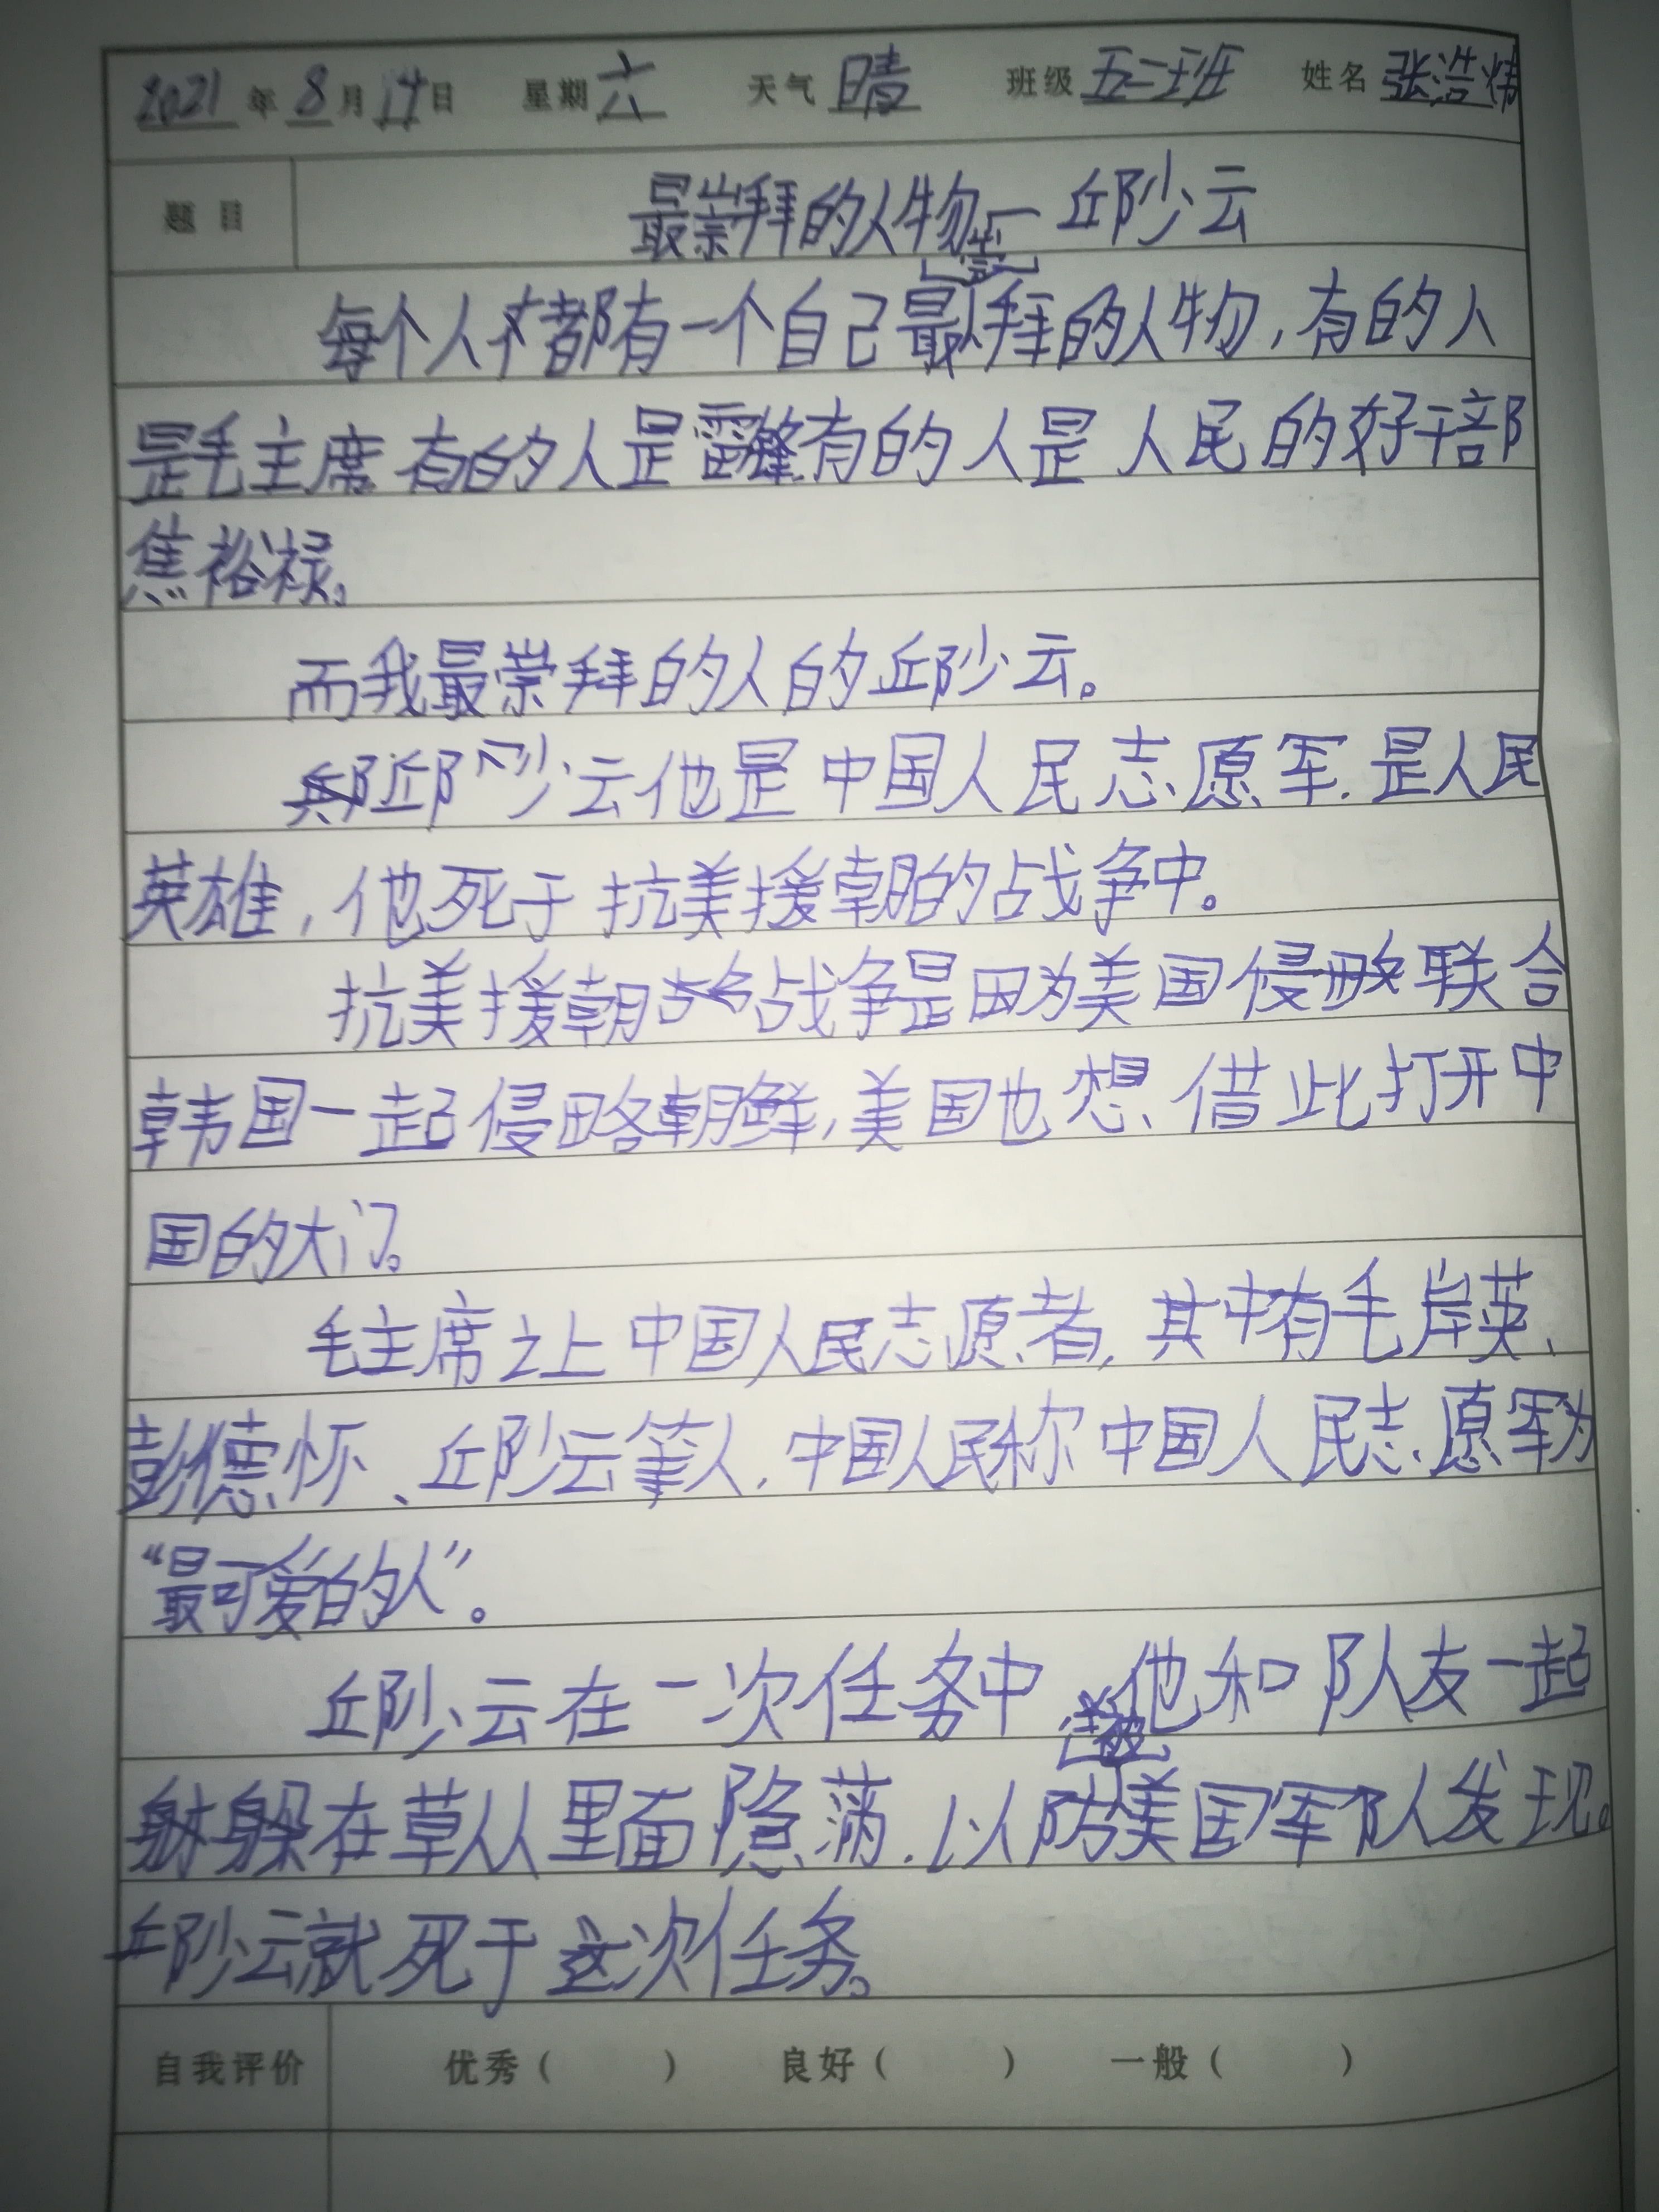 2021年8月14日 星期六 天气晴 班级五二班 姓名张浩炜
题目 最崇拜的人物——邱少云
每个人都有一个自己最崇拜的人物,有的人
是毛主席 有的人是雷锋有的人是人民的好干部
焦裕禄。
而我最崇拜的人的邱少云。
邱少云他是中国人民志愿军.是人民
英雄,他死于抗美援朝的战争中。
抗美援朝战争是因为美国侵略联合
韩国一起侵略朝鲜,美国也想借此打开中
国的大门。
毛主席之上中国人民志愿者,其中有毛岸英、
彭德怀、邱少云等人.中国人民称中国人民志愿军为
“最可爱的人”。
邱少云在一次任务中 他和队友一起
躲在草从里面隐蔽.以防被美国军队人发现。
邱少云就死于这次任务。
自我评价 优秀( ) 良好( ) 一般( )